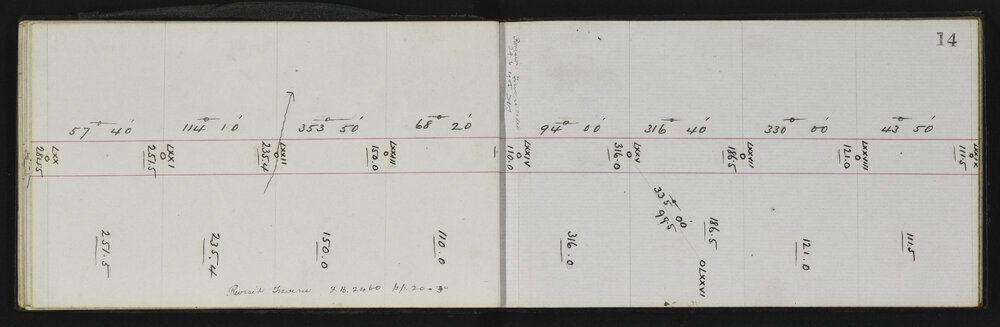 14
57° 40'
114° 10'
353° 50'
68° 20'
94° 00'
316° 40'
330° 00'
43° 50'
LXX
251.5
LXXI
251.5
LXXII
235.4
LXXIII
150.0
LXXIV
110.0
LXXV
316.0
LXXVII
186.5
LXXVIII
121.0
LXXIX
111.5
335° 00'
99.5
251.5
235.4
150.0
110.0
316.0
186.5
LXXVI
121.0
111.5
Revised Traverse F.B. 2460 p/. 20 - 30